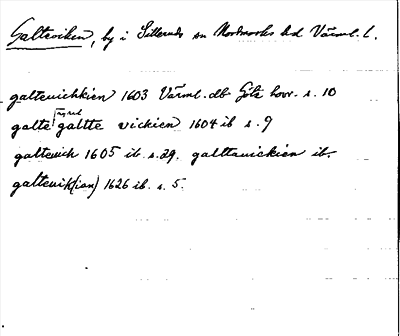 Galteviken, by i Silleruds sn Nordmarks hd Värml. l.
galteuichkien 1603 Värml. db Göta hovr. s. 10
galte galtte vickien 1604 ib s. 9
galteuich 1605 ib. s. 29. galttauickien ib.
galteuik(ian) 1626 ib. s. 5.